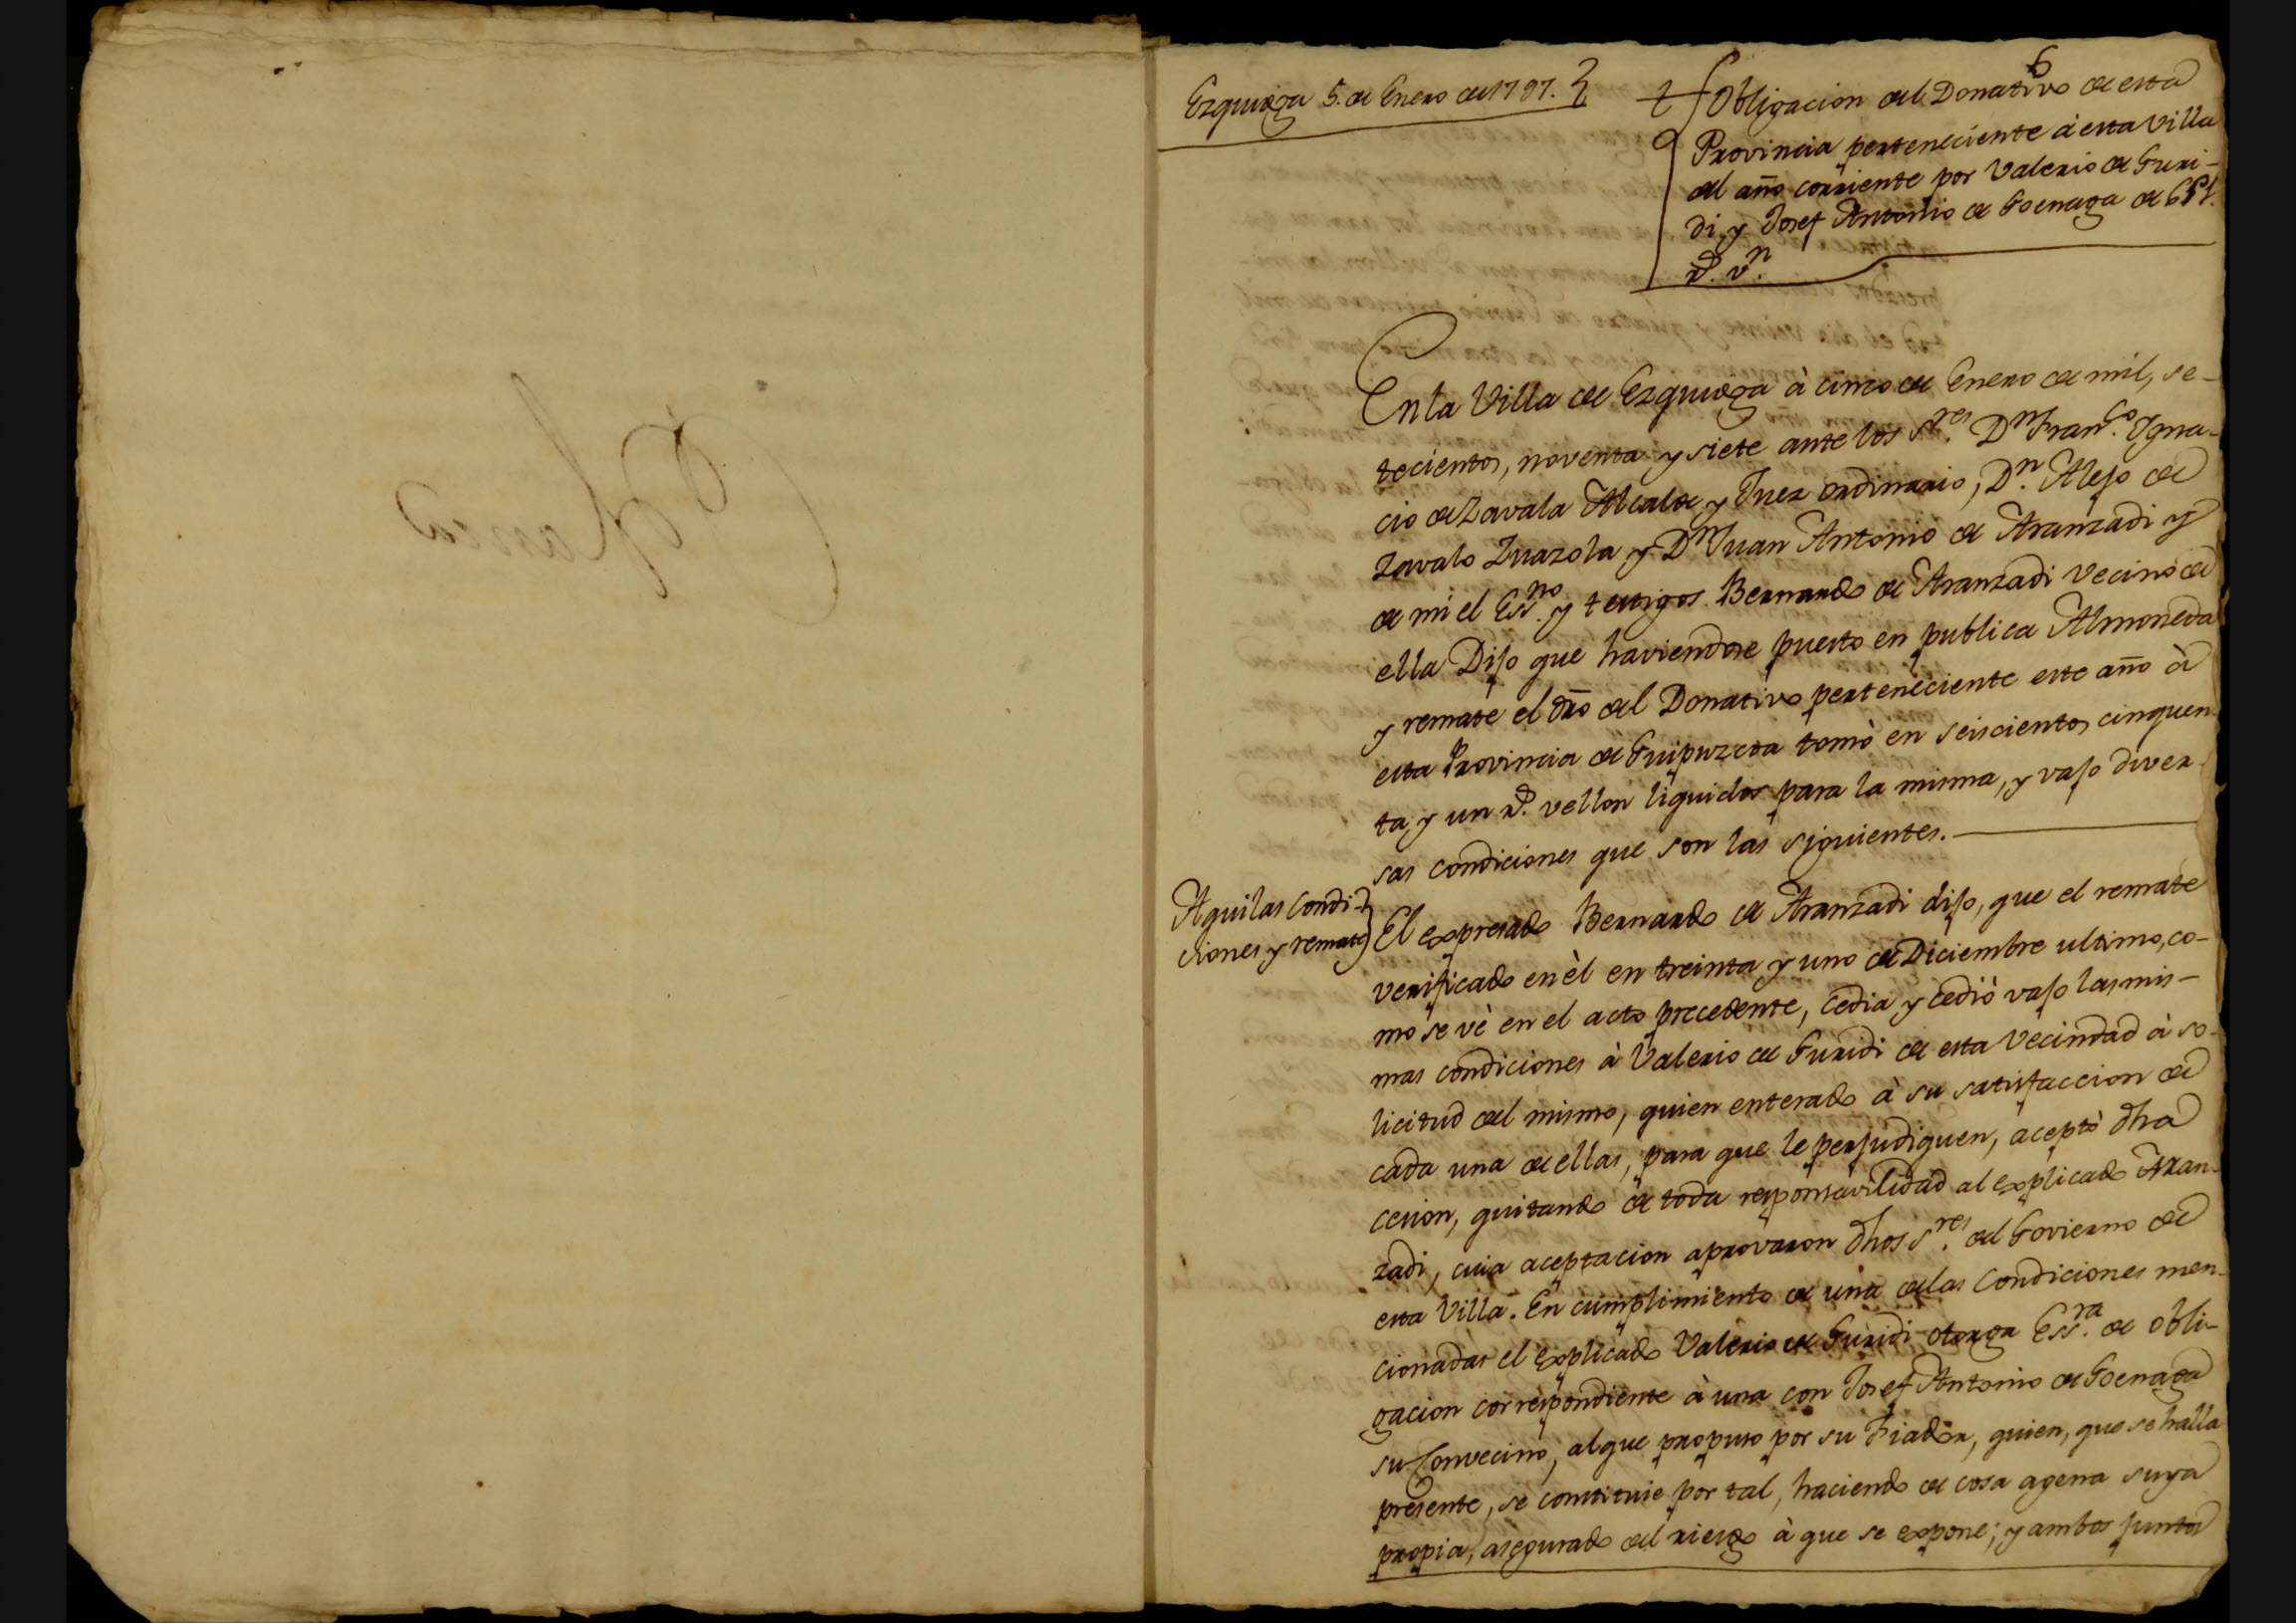 Ezquioga 5. de Enero de 1797.
6
Obligacion del Donativo de esta
Provincia perteneciente à esta Villa
del año corriente por Valerio de Guri-
di, y Josef Antonio de Goenaga de 651.
r.^s v.^n
En la Villa de Ezquioga à cinco de Enero de mil, se-
tecientos, noventa y siete ante los S.^res D.^n Fran.^co Igna-
cio de Zavala Alcalde y Juez ordinario, D.^n Alejo de
Zavalo Zuazola y D.^n Juan Antonio de Aranzadi y
de mi el Ess.^no y testigos Bernardo de Aranzadi vecino de
ella Dijo que haviendose puesto en publica Almoneda
y remate el dro del Donativo perteneciente este año à
esta Provincia de Guipuzcoa tomò en seiscientos cinquen-
ta, y un r.^s vellon liquidos para la misma, y vajo diver-
sas condiciones que son las siguientes.
Aqui las condi-
ciones y remate
El expresado Bernardo de Aranzadi dijo, que el remate
verificado en èl en treinta y uno de Diciembre ultimo, co-
mo se vè en el acto precedente, cedia y cediò vajo las mis-
mas condiciones à Valerio de Guridi de esta Vecindad à so-
licitud del mismo, quien enterado à su satisfaccion de
cada una de ellas, para que le perjudiquen, aceptò dha
cesion, quitando de toda responsavilidad al explicado Aran-
zadi, cuia aceptacion aprovaron dhos S.^res del Govierno de
esta Villa. En cumplimiento de una de las condiciones men-
cionadas el explicado Valerio de Guridi otorga Ess.^ra de obli-
gacion correspondiente à una con Josef Antonio de Goenaga
su Convecino, al que propuso por su Fiador, quien, que se halla
presente, se constituie por tal, haciendo de cosa agena suya
propia, asegurado del riesgo à que se expone; y ambos juntos